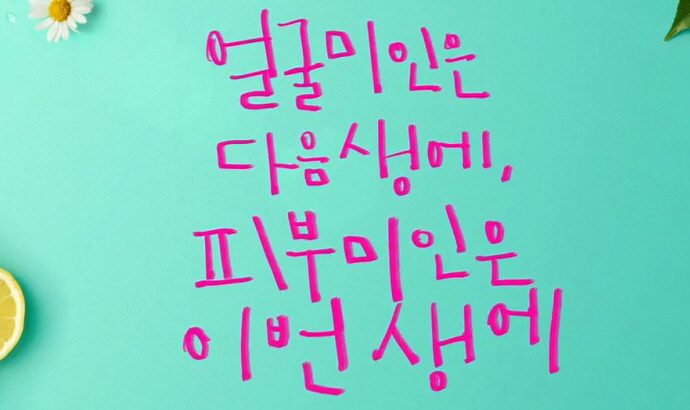 얼굴미인은
다음생에,
피부미인은
이번생에